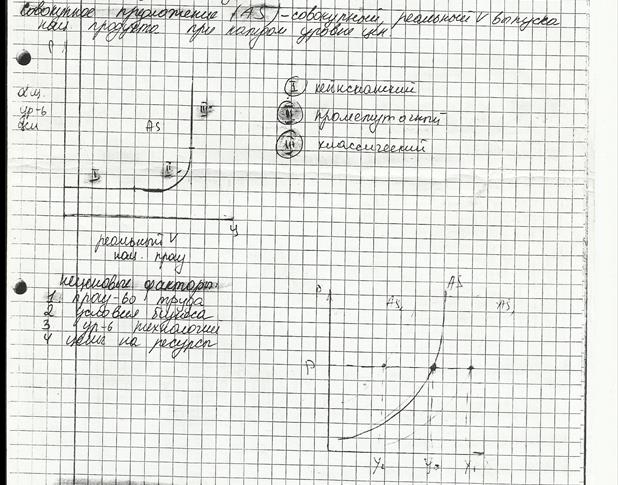 Совокупное предложение (AS) - совокупный, реальный V выпуска
нац. продукта при каждом уровне цен.
P
AS
III
II
I
общ.
ур-ь
цен
Y
реальный V
нац. прод
I кейнсианский
II промежуточный
III классический
неценовые факторы
1 произ-во труда
2 условия бизнеса
3 ур-ь технологии
4 цены на ресурсы
P
AS
AS₂
AS₁
P
Y₂
Y₀
Y₁